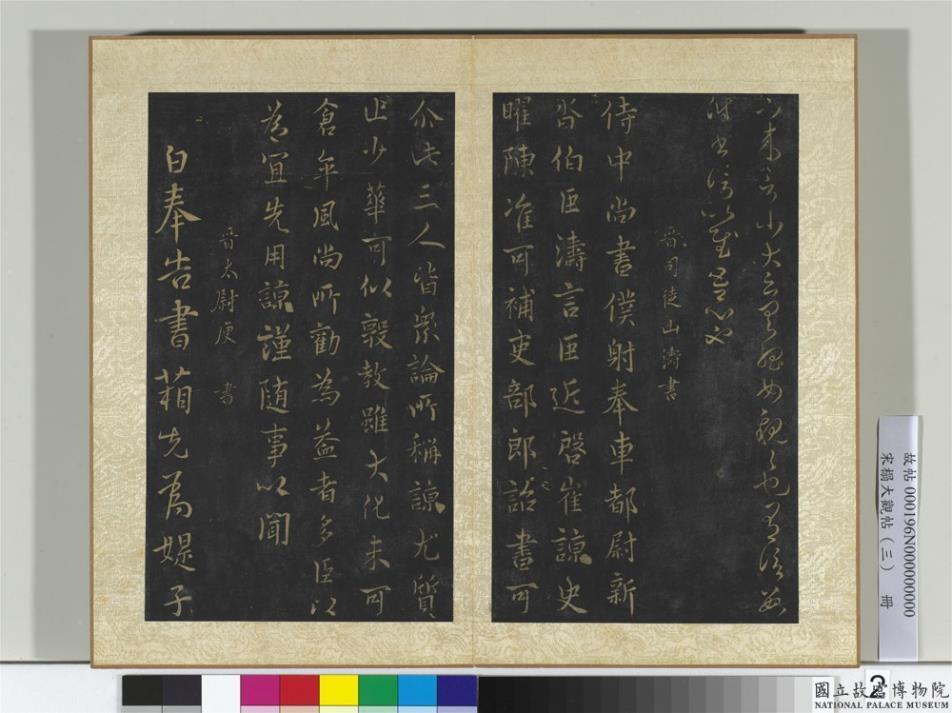 晉司徒山濤書
侍中尚書僕射奉車都尉新
沓伯臣濤言臣近啓崔諒史
曜陳准可補吏部郎詔書可
尒此三人皆衆論所稱諒尤質
止少華可以敦教雖大化未可
倉卒風尚所勸為益者多臣以
為宜先用諒謹隨事以聞
晉太尉庾 書
白奉告書箱先為媞子
故帖000196N000000000
宋搨大觀帖（三） 冊
2
國立故宮博物院
NATIONAL PALACE MUSEUM